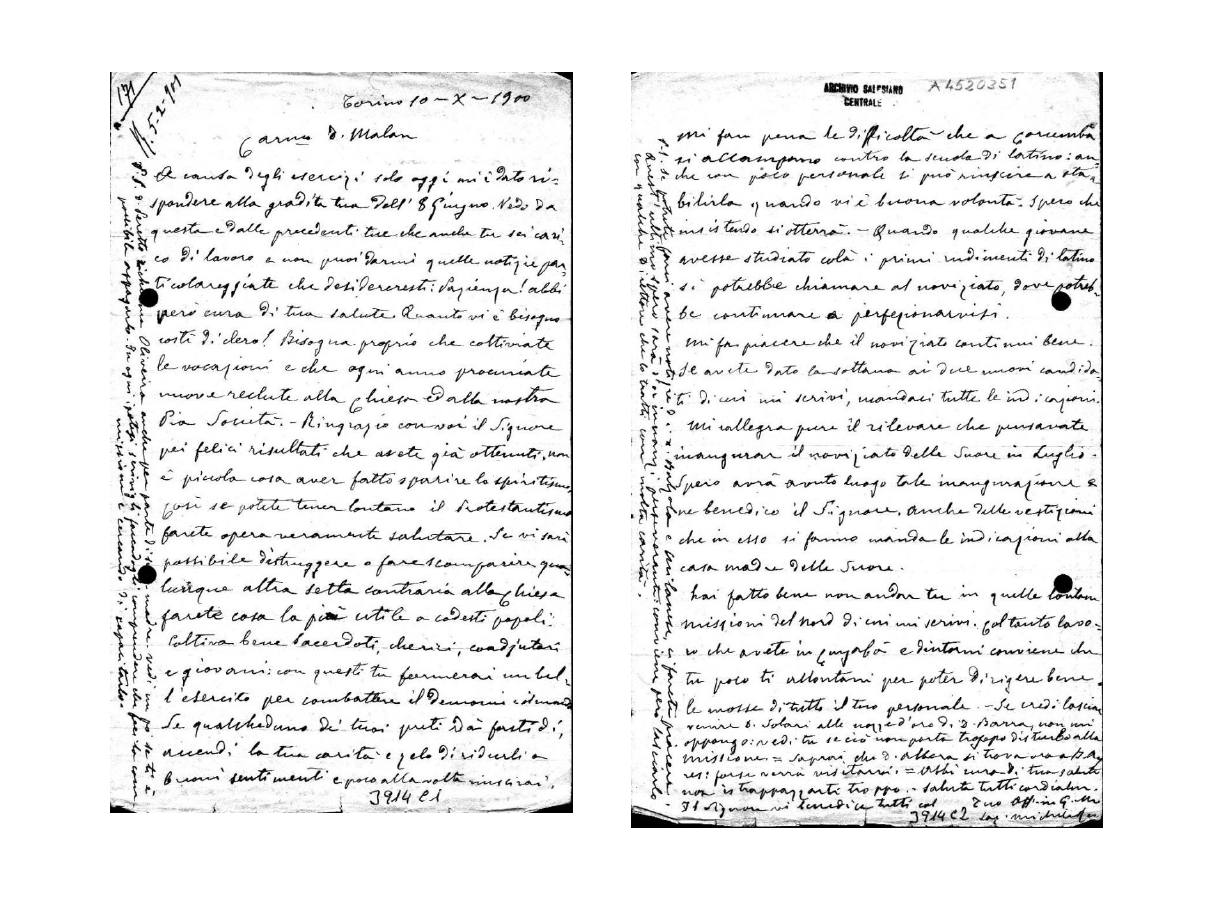 171
5-2-901
Torino 10-X-1900
Carmo D. Malan
A causa degli esercizi solo oggi mi è dato ri-
spondere alla gradita tua dell' 8 Giugno. Vedo da
questa e dalle precedenti tue che anche tu sei cari-
co di lavoro e non puoi darmi quelle notizie par-
ticolareggiate che desidereresti: Pazienza! abbi
però cura di tua salute. Quanto vi è bisogno
costì di clero! Bisogna proprio che coltiviate
le vocazioni e che ogni anno procuriate
nuove reclute alla Chiesa ed alla nostra
Pia Società. - Ringrazio con voi il Signore
pei felici risultati che avete già ottenuti, non
è piccola cosa aver fatto sparire lo spiritismo,
così se potete tener lontano il Protestantismo
farete opera veramente salutare. Se vi sarà
possibile distruggere o fare scomparire qua-
lunque altra setta contraria alla Chiesa
farete cosa la più utile a codesti popoli.
Coltiva bene Sacerdoti, cherici, coadjutori
e giovani: con questi tu formerai un bel-
l'esercito per combattere il demonio
Se qualcheduno de' tuoi preti dà fastidi,
accendi la tua carità e zelo di ridurli a
buoni sentimenti e poco alla volta riuscirai.
3914 C1
P.S. D. Peretto Oliveira anche per parte di madre: vedi un po' se ti è
possibile appagarlo. In ogni scrivigli facendogli comprendere che
missioni
ARCHIVIO SALESIANO
CENTRALE
A4520351
Mi fan pena le difficoltà che a Corumbà
si accampano contro la scuola di latino: an-
che con poco personale si può riuscire a sta-
bilirla quando vi è buona volontà. Spero che
insistendo si otterrà. - Quando qualche giovane
avesse studiato colà i primi rudimenti di latino
si potrebbe chiamare al noviziato, dove potreb-
be continuare a perfezionarvisi.
Mi fa piacere che il noviziato continui bene.
Se avete dato la sottana ai due nuovi candida-
ti di cui mi scrivi, mandaci tutte le indicazioni.
Mi rallegra pure il rilevare che pensavate
inaugurar il noviziato delle Suore in Luglio.
Spero avrà avuto luogo tale inaugurazione e
ne benedico il Signore. Anche delle vestizioni
che in esso si fanno manda le indicazioni alla
casa madre delle Suore.
Hai fatto bene non andar tu in quelle lontane
missioni del nord di cui mi scrivi. Col tanto lavo-
ro che avete in Cuyabà e dintorni conviene che
tu poco ti allontani per poter dirigere bene
le mosse di tutto il tuo personale. - Se credi lasciar
venire D. Solari alle nozze d'oro di D. Barra, non mi
oppongo: vedi tu se ciò non porta troppo disturbo alla
missione. = Saprai che D. Albera si trova ora a B. Ay-
res: forse verrà visitarvi. = Abbi cura di tua salute
non istrapazzarti troppo. - Saluta tutti cordialm.
Il Signore vi benedica tutti col Tuo Aff. in G. M.
3914 C2 Sac. Michele
P.S. se potrete farmi avere notizie di D. Balzola e, ci farete piacere.
Quest'ultimo spero sarà perseverante, conviene però lasciarlo
con qualche Direttore che lo tratti con molta carità.